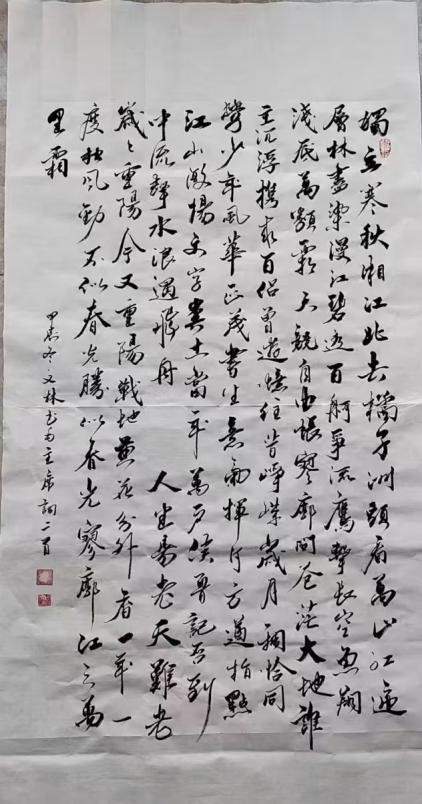 獨立寒秋湘江北去橘子洲頭看萬山紅遍
層林盡染漫江碧透百舸爭流鷹擊長空魚翔
淺底萬類霜天競自由悵寥廓問蒼茫大地誰
主沉浮攜來百侶曾遊憶往昔崢嶸歲月稠恰同
學少年風華正茂書生意氣揮斥方遒指點
江山激揚文字糞土當年萬戶侯曾記否到
中流擊水浪遏飛舟 人生易老天難老
歲々重陽今又重陽戰地黃花分外香一年一
度秋風勁不似春光勝似春光寥廓江天萬
里霜
甲辰冬文林書毛主席詞二首